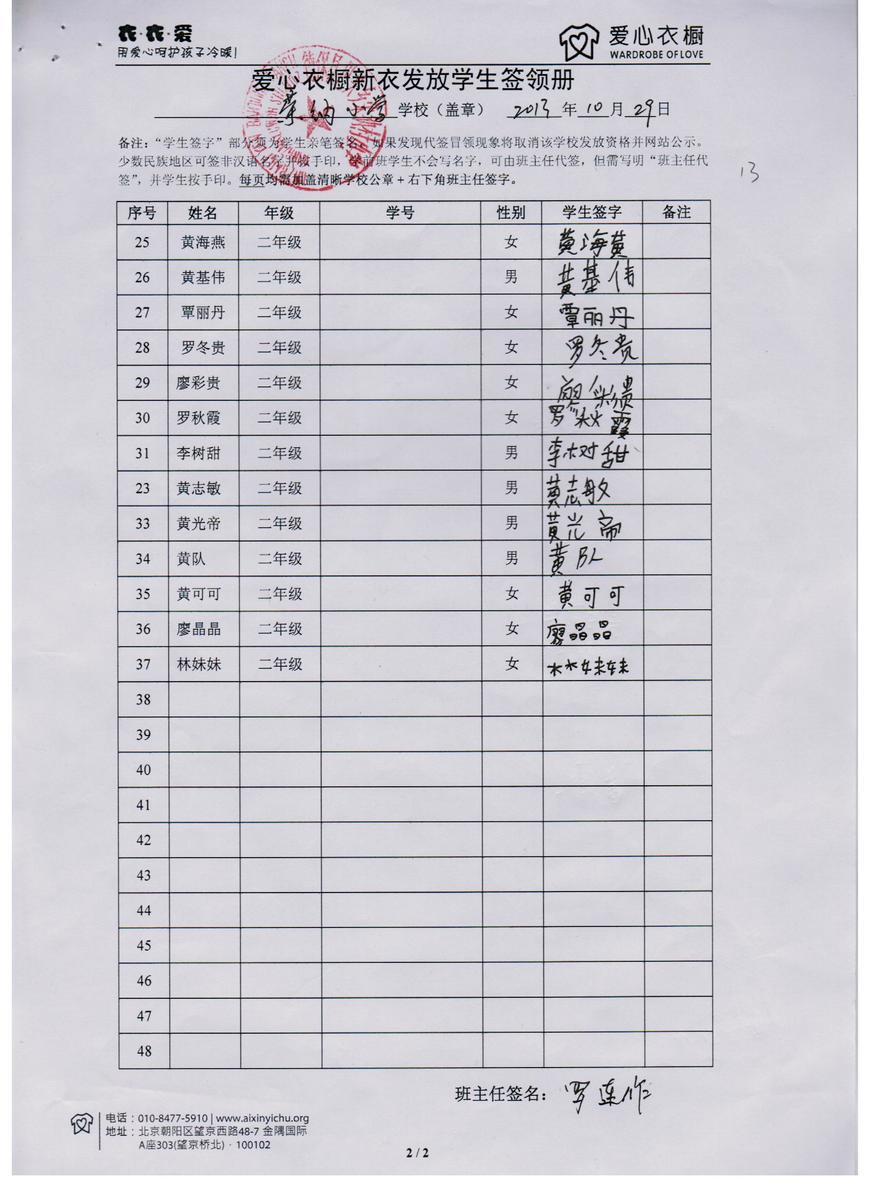 衣·衣·爱
用爱心呵护孩子冷暖!
爱心衣橱
WARDROBE OF LOVE
爱心衣橱新衣发放学生签领册
纳小学 学校（盖章） 2013 年 10 月 29 日
备注：“学生签字”部分须为学生亲笔签名，如果发现代签冒领现象将取消该学校发放资格并网站公示。
少数民族地区可签非汉语名字并按手印，学前班学生不会写名字，可由班主任代签，但需写明“班主任代
签”，并学生按手印。每页均需加盖清晰学校公章+右下角班主任签字。
13
序号 姓名 年级 学号 性别 学生签字 备注
25 黄海燕 二年级 女 黄海黄
26 黄基伟 二年级 男 黄基伟
27 覃丽丹 二年级 女 覃丽丹
28 罗冬贵 二年级 女 罗冬贵
29 廖彩贵 二年级 女
30 罗秋霞 二年级 女 罗秋霞
31 李树甜 二年级 男 李树甜
23 黄志敏 二年级 男 黄志敏
33 黄光帝 二年级 男 黄光帝
34 黄队 二年级 男 黄队
35 黄可可 二年级 女 黄可可
36 廖晶晶 二年级 女 廖晶晶
37 林妹妹 二年级 女 林妹妹
38
39
40
41
42
43
44
45
46
47
48
班主任签名： 罗莲作
电话：010-8477-5910 | www.aixinyichu.org
地址：北京朝阳区望京西路48-7 金隅国际
A座303(望京桥北) · 100102
2 / 2